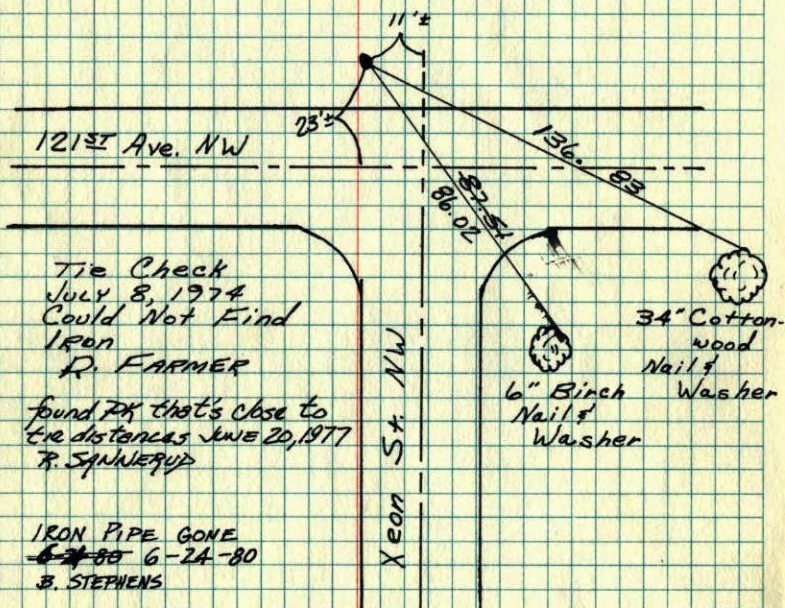 11'±
23'±
121ST Ave. NW
136.83
87.51
86.02
Tie Check
JULY 8, 1974
Could Not Find
Iron
D. FARMER
found PK that's close to
tie distances JUNE 20, 1977
R. SANNERUD
IRON PIPE GONE
6-21-80 6-24-80
B. STEPHENS
Xeon St. NW
6" Birch
Nail &
Washer
34" Cotton-
wood
Nail &
Washer